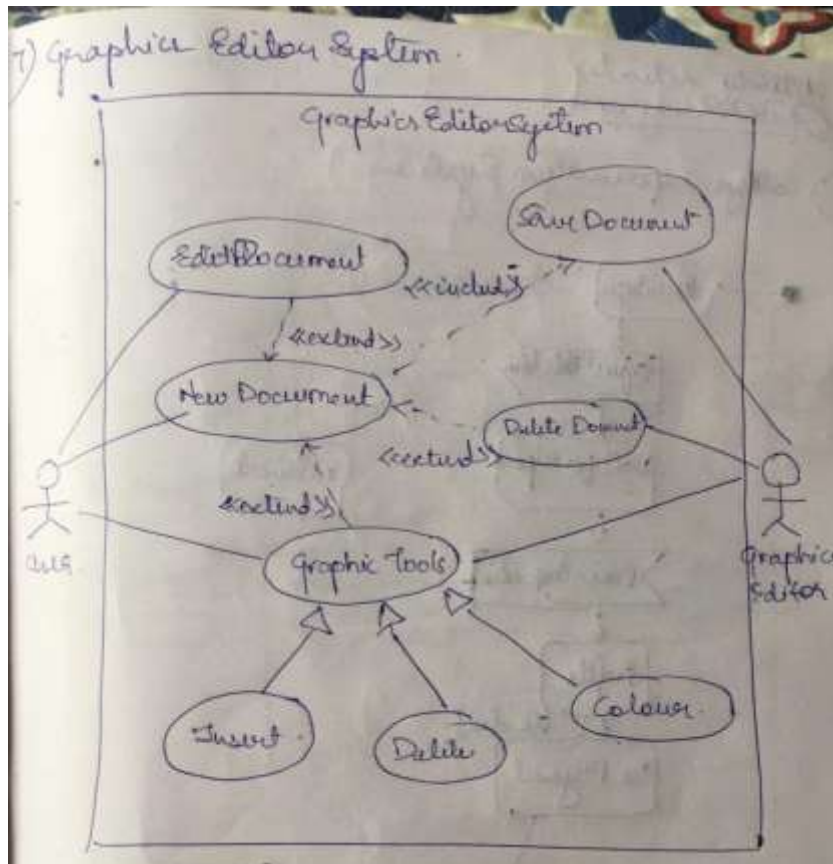 7) Graphics Editor System.
Graphics Editor System
Save Document
Edit Document
<<include>>
<<extend>>
New Document
Delete Document
<<extend>>
<<extend>>
Graphic Tools
Graphics
Editor
Insert
Delete
Colour